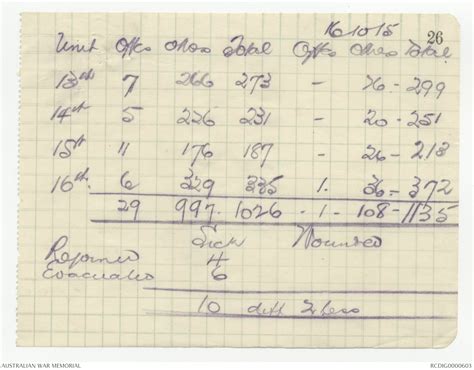 16.10.15
26
Unit Offcs Ohes Total Offcs Ohes Total
13th 7 266 273 - 26 - 299
14th 5 226 231 - 20 - 251
15th 11 176 187 - 26 - 213
16th. 6 329 335 1. 36 = 372
29 997. 1026 - 1 - 108 - 1135
Sick Wounded
Rejoined 4
Evacuated 6
10 diff
AUSTRALIAN WAR MEMORIAL
RCDIG0000603